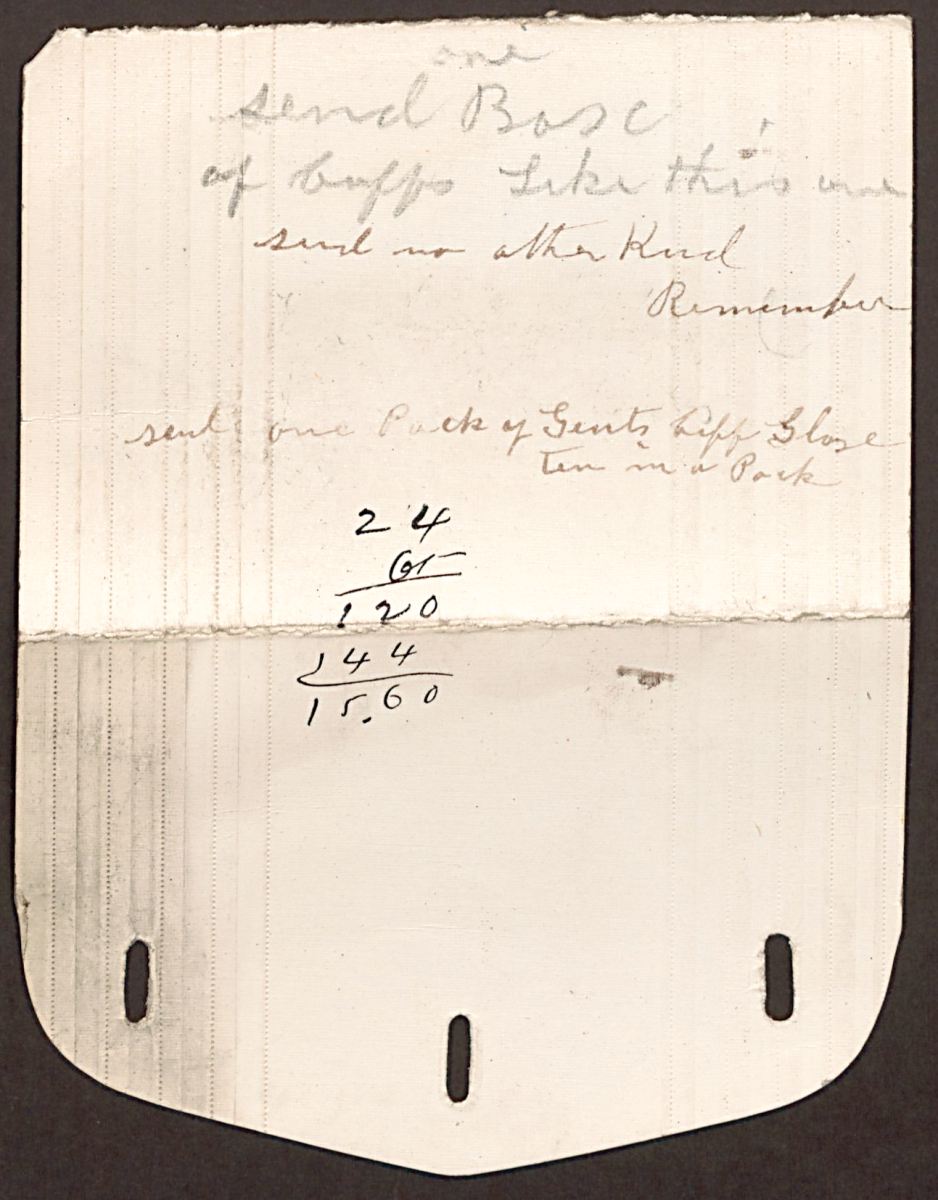 one
send Boxe
of Cuffs Like this one
send no other Kind
Remember
send one Pack of Gents Cuff
ten in a Pack
24
65
120
144
15.60